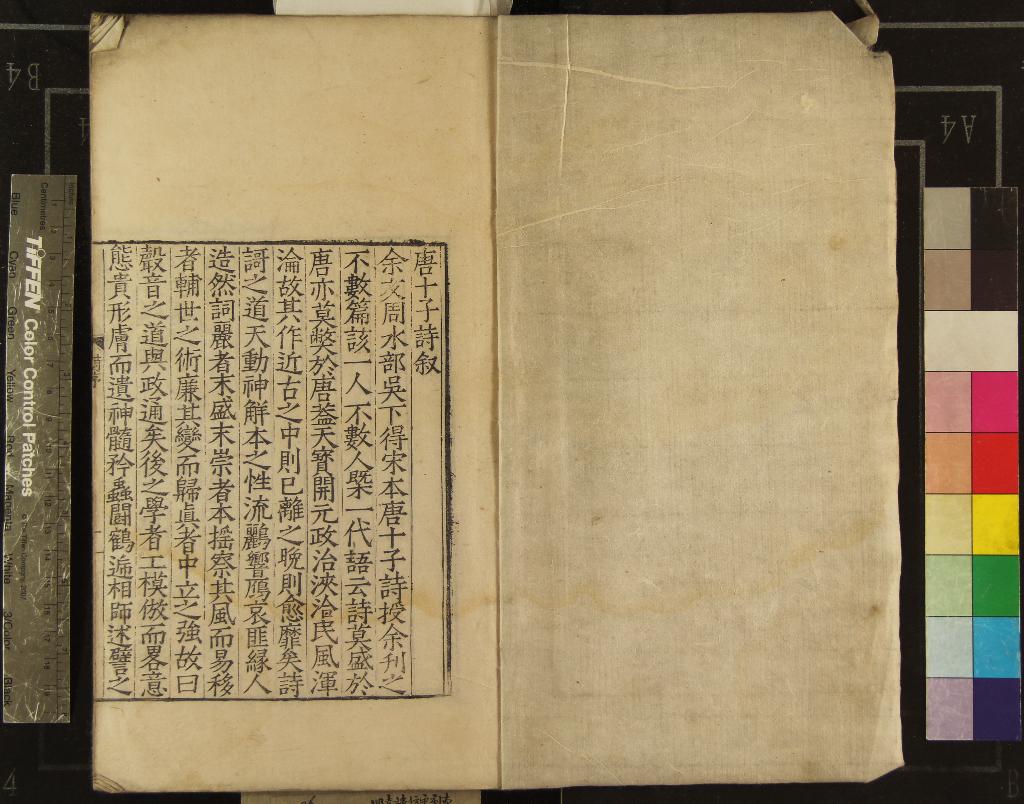 唐十子詩叙
余友周水部吳下得宋本唐十子詩授余刋之
不數篇該一人不數人槩一代語云詩莫盛於
唐亦莫獘於唐葢天寳開元政治浹洽民風渾
淪故其作近古之中則已離之晚則愈靡矣詩
謌之道天動神解本之性流鸝響鴈哀匪緣人
造然詞麗者末盛末崇者本揺察其風而易移
者輔世之術廉其變而歸眞者中立之強故曰
聲音之道與政通矣後之學者工模倣而畧意
態貴形膚而遺神髓矜蟲鬬鶴遞相師述譬之
TIFFEN Color Control Patches
Inches
Centimetres
Blue
Cyan
Green
Yellow
Red
Magenta
White
3/Color
Black
B4
A4